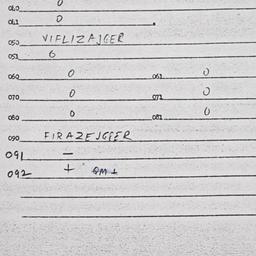 040 0
041 0
050 VIFLIZAJGER
051 6
060 0 061 0
070 0 071 0
080 0 081 0
090 FIRAZEJGEER
091 –
092 + QM ⊥